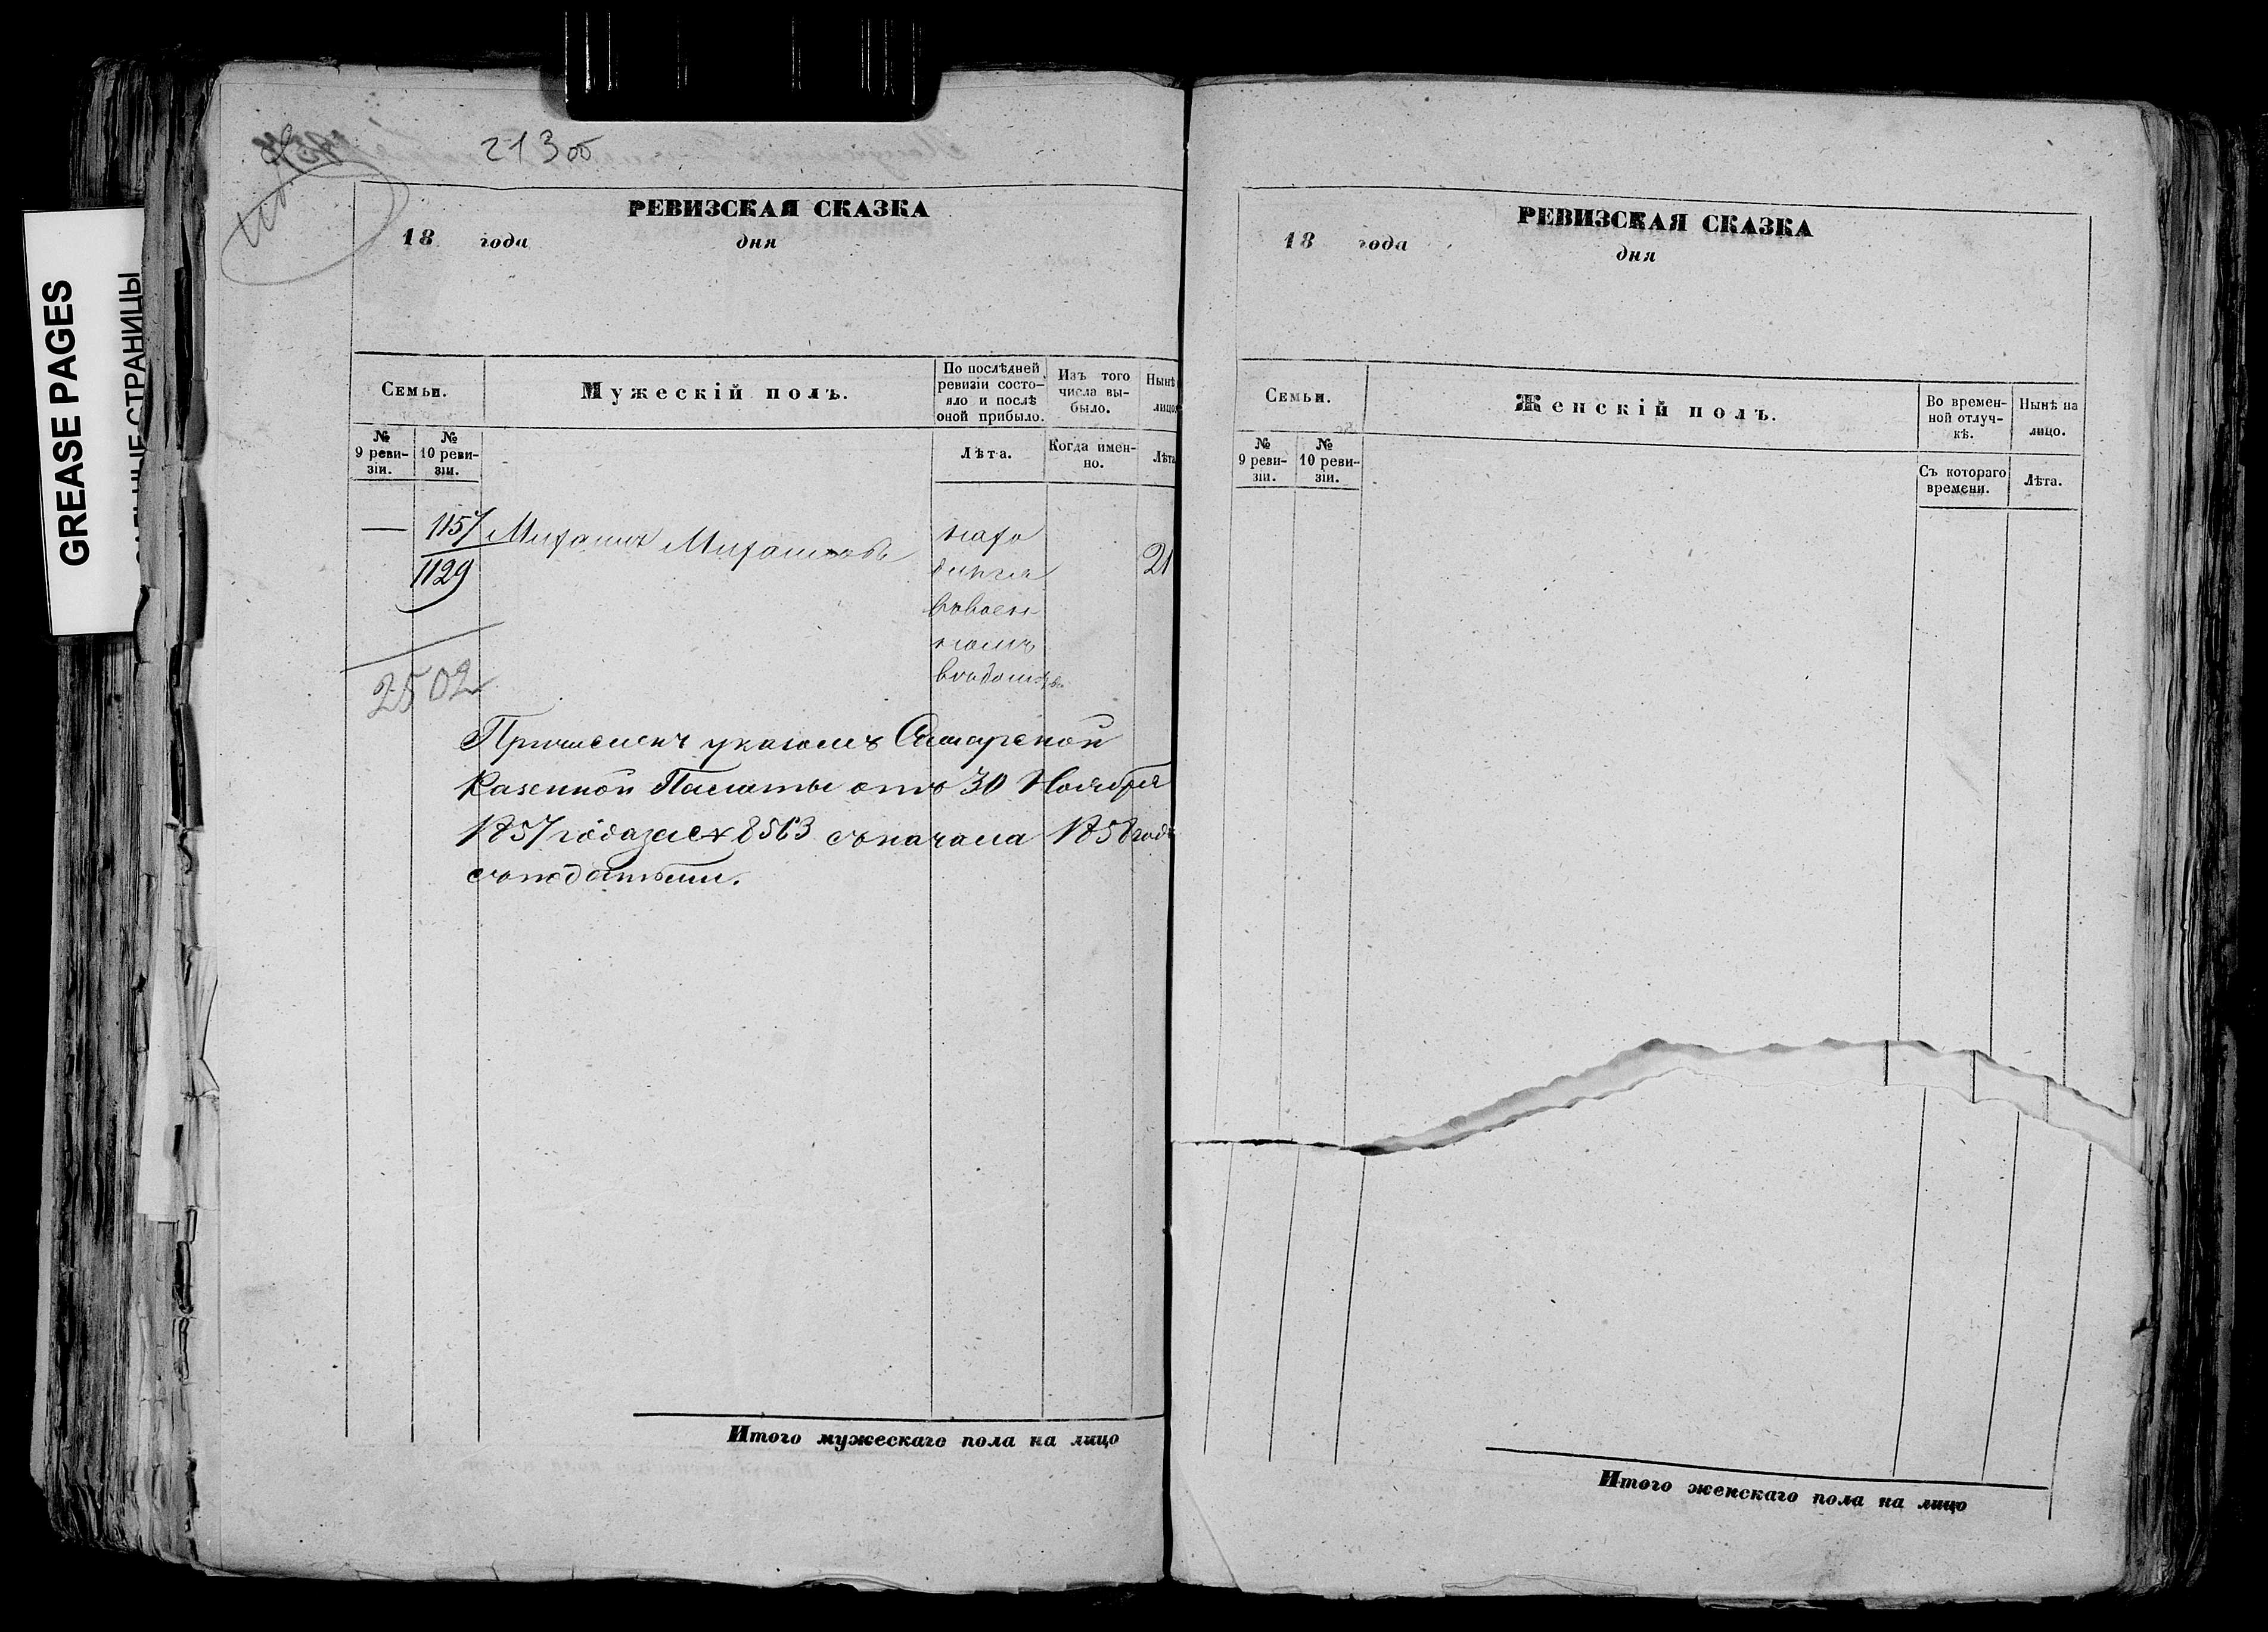 GREASE PAGES
213 об
РЕВИЗСКАЯ СКАЗКА
18 года дня
Семьи.
Мужескій полъ.
По послѣдней ревизіи состо-
яло и послѣ оной прибыло.
Изъ того числа вы-
было.
Нынѣ
лицо
№ 9 реви-
зіи.
№ 10 реви-
зіи.
Лѣта.
Когда имен-
но.
Лѣта
— 1157
1129
2502
нахо
дился
въ воен
номъ
вѣдомствѣ
21
Причисленъ указомъ Самарской
Казенной Палаты отъ 30 Ноября
1857 года за № 8563 съ начала 1858 года
съ податьми.
Итого мужескаго пола на лицо
РЕВИЗСКАЯ СКАЗКА
18 года дня
Семьи.
Женскій полъ.
Во времен-
ной отлуч-
кѣ.
Нынѣ на
лицо.
№ 9 реви-
зіи.
№ 10 реви-
зіи.
Съ котораго
времени.
Лѣта.
Итого женскаго пола на лицо